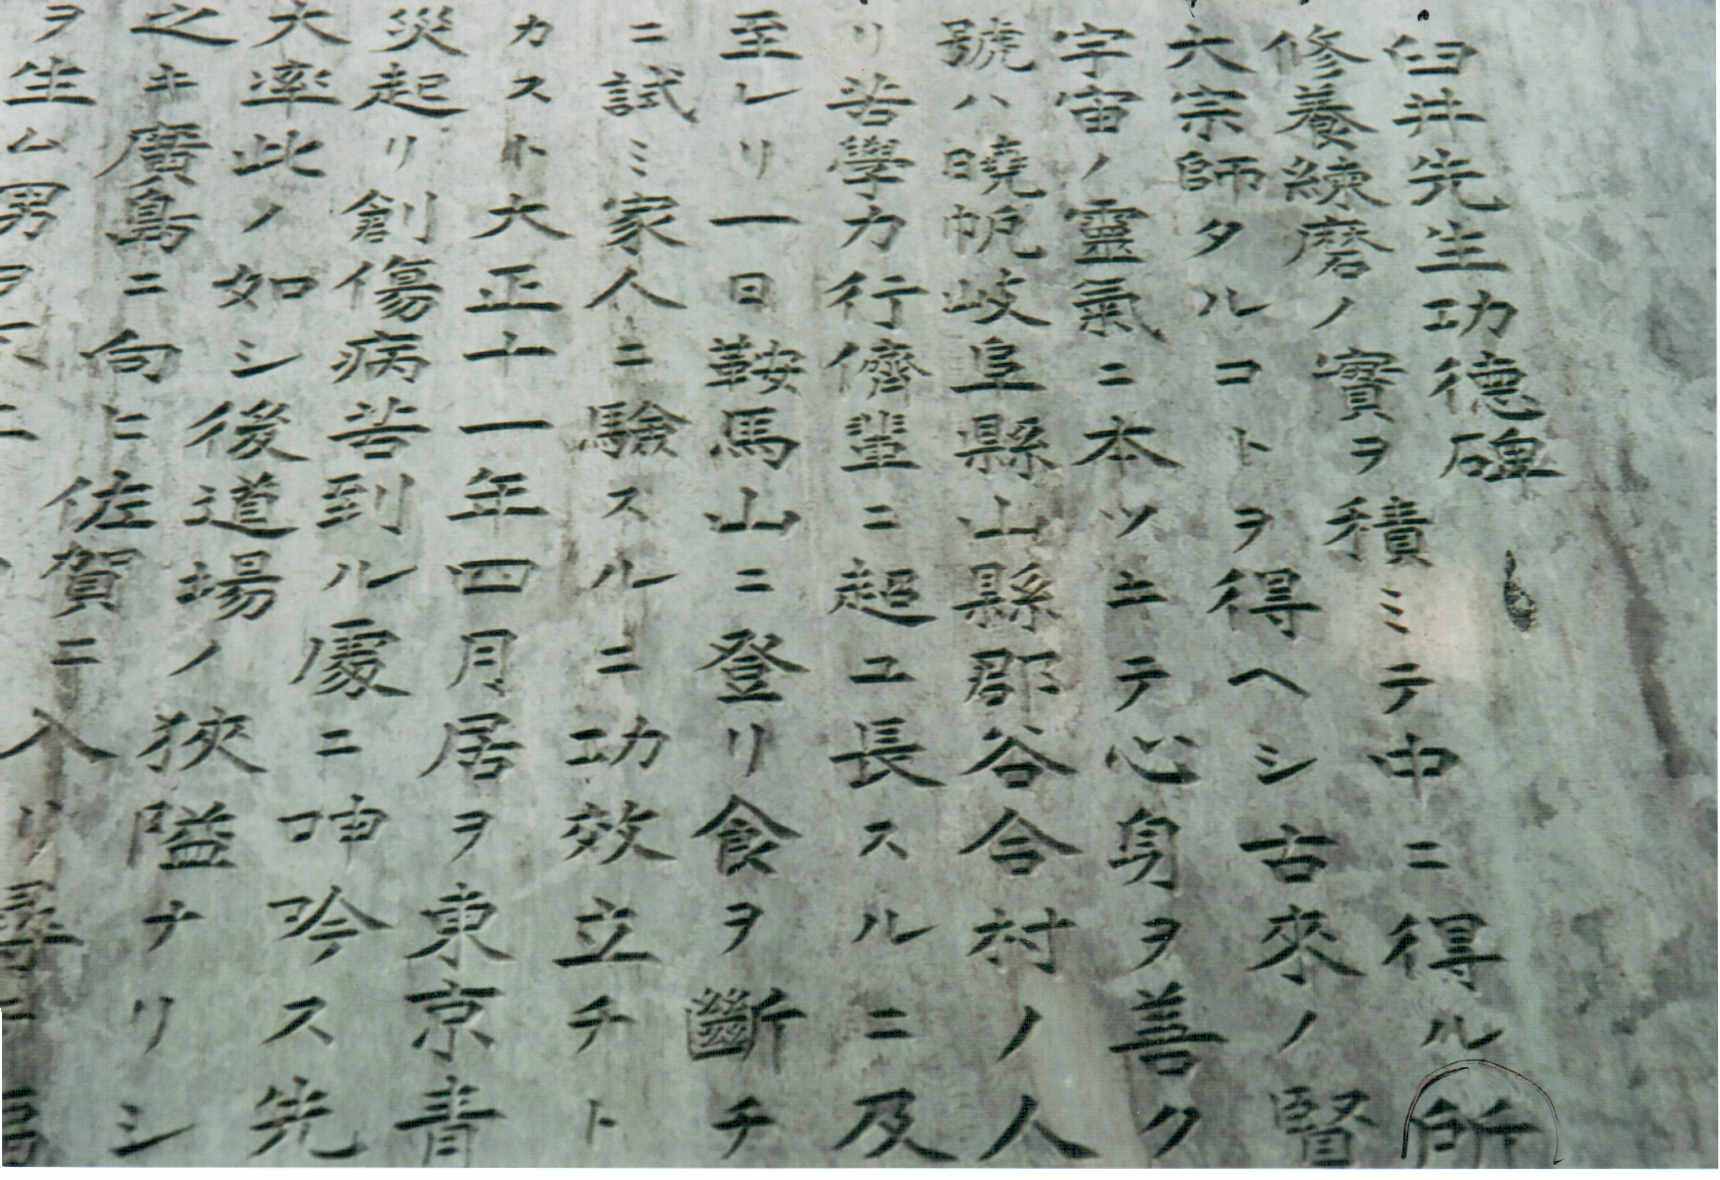 臼井先生功德碑
修養練磨ノ實ヲ積ミテ中ニ得ル所
大宗師タルコトヲ得ヘシ古來ノ賢
宇宙ノ靈氣ニ本ツキテ心身ヲ善ク
號ハ曉帆岐阜縣山縣郡谷合村ノ人
リ苦學力行儕輩ニ超ユ長スルニ及
至レリ一日鞍馬山ニ登リ食ヲ斷チ
ニ試ミ家人ニ驗スルニ功效立チト
カスト大正十一年四月居ヲ東京青
災起リ創傷病苦到ル處ニ呻吟ス先
大率此ノ如シ後道場ノ狹隘ナリシ
之キ廣島ニ向ヒ佐賀ニ入リ
ヲ生ム男